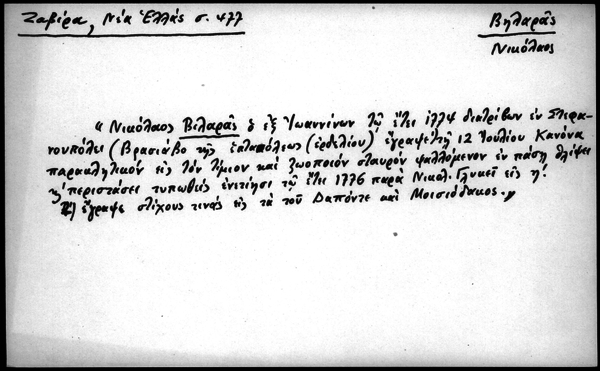 Ζαβίρα, Νέα Ἑλλάς σ. 477
Βηλαρᾶς
Νικόλαος
"Νικόλαος Βιλαρᾶς ὁ ἐξ Ἰωαννίνων τῷ ἔτει 1774 διατρίβων ἐν Στεφα-
νουπόλει (Βρασιόβῳ τῆς Ἑπταπόλεως (ἐρδελίου) ἔγραψε τῇ 12 Ἰουλίου Κανόνα
παρακλητικόν εἰς τόν τίμιον καί ζωοποιόν σταυρόν ψαλλόμενον ἐν πάσῃ θλίψει
ἤ περιστάσει τυπωθείς ἐνετίησι τῷ ἔτει 1776 παρά Νικολ. Γλυκεῖ εἰς η!
ἔγραψε στίχους τινάς εἰς τά τοῦ Δαπόντε καί Μοισιόδακος.»